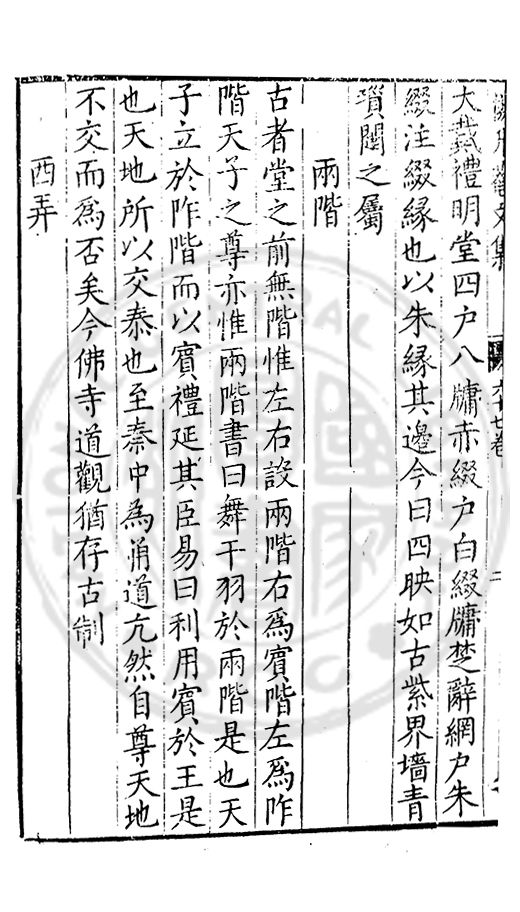 大戴禮明堂四户八牖赤綴户白綴牖楚辭網户朱
綴注綴縁也以朱縁其邊今曰四映如古紫界墻青
瑣闥之屬
兩階
古者堂之前無階惟左右設兩階右爲賓階左爲阼
階天子之尊亦惟兩階書曰舞干羽於兩階是也天
子立於阼階而以賓禮延其臣易曰利用賓於王是
也天地所以交泰也至秦中為甬道亢然自尊天地
不交而爲否矣今佛寺道觀猶存古制
西弄